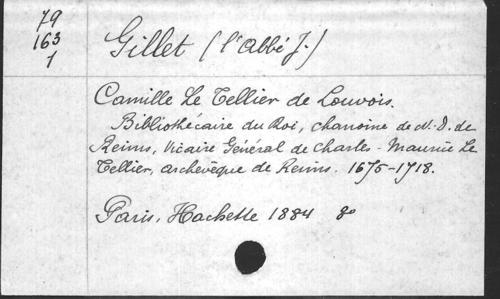 79
163
1
Gillet (l'abbé J.)
Camille Le Tellier de Louvois.
Bibliothécaire du Roi, chanoine de N.-D. de
Reims, Vicaire Général de Charles-Maurice Le
Tellier, archevêque de Reims. 1675-1718.
Paris, Hachette 1884 8o